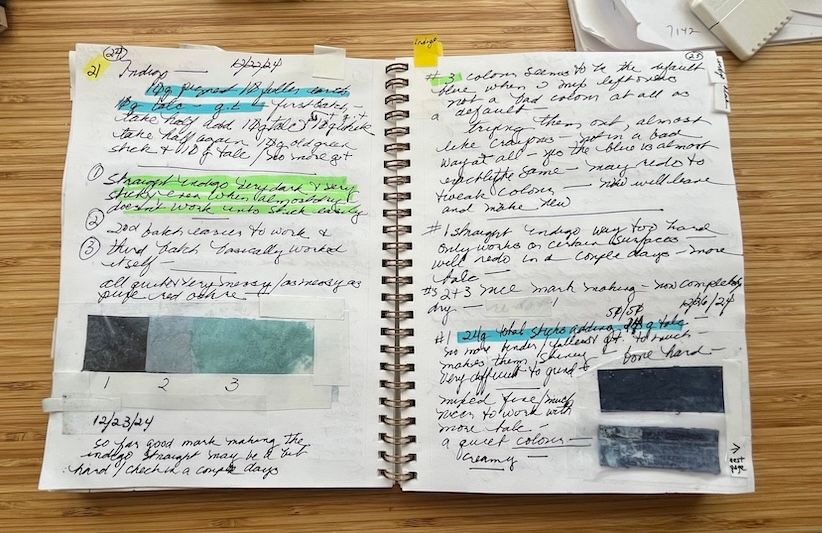 24
21
Indigo — 12/22/24
18g pigment 18 filler each
18g talc - g.t. - first batch -
take half add 18g talc
take half again 18g old green
stick & 18g talc / no more g.t
① straight indigo very dark & very
sticky even when almost dry
doesn't work into stick easily
② 2nd batch easier to work &
③ third batch basically worked
itself —
all quite very messy / as messy as
pure red ochre
1 2 3
12/23/24
so far good mark making the
indigo straight may be a bit
hard / check in a couple days
indigo
25
7142
#3 colour seems to be the default
blue when I mix leftovers
not a bad colour at all as
a default —
trying them out almost
like crayons — not in a bad
way at all — yes the blue is almost
exactly the same — may redo to
tweak colour — now will leave
and make new
#1 straight indigo way too hard
only works on certain surfaces
will redo in a couple days — more
talc —
#s 2+3 nice mark making — now completely
dry —
12/26/24
#1 24g total sticks adding 24g talc
no more binder / filler g.t. to much —
makes them shiney —
very difficult to grind & bone hard —
mixed fine / much
nicer to work with
more talc —
a quiet colour —
creamy —
→
next
page